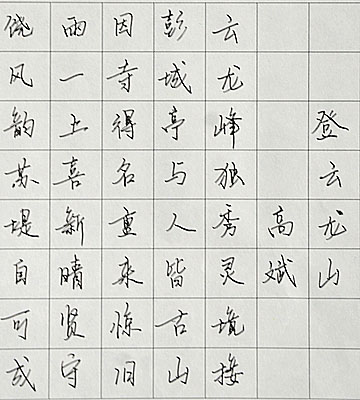 登云龙山
高斌
云龙峰独秀灵境接
彭城亭与人皆古山
因寺得名重来惊旧
雨一上喜新晴贤守
饶风韵苏堤自可成